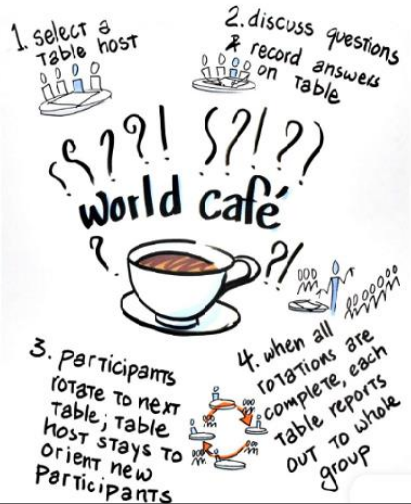 1. select a
Table host
2. discuss questions
& record answers
on Table
??!?!??
world café
? ?!
3. participants
rotate to next
Table; Table
host stays to
orient new
participants
4. when all
rotations are
complete, each
Table reports
out to whole
group